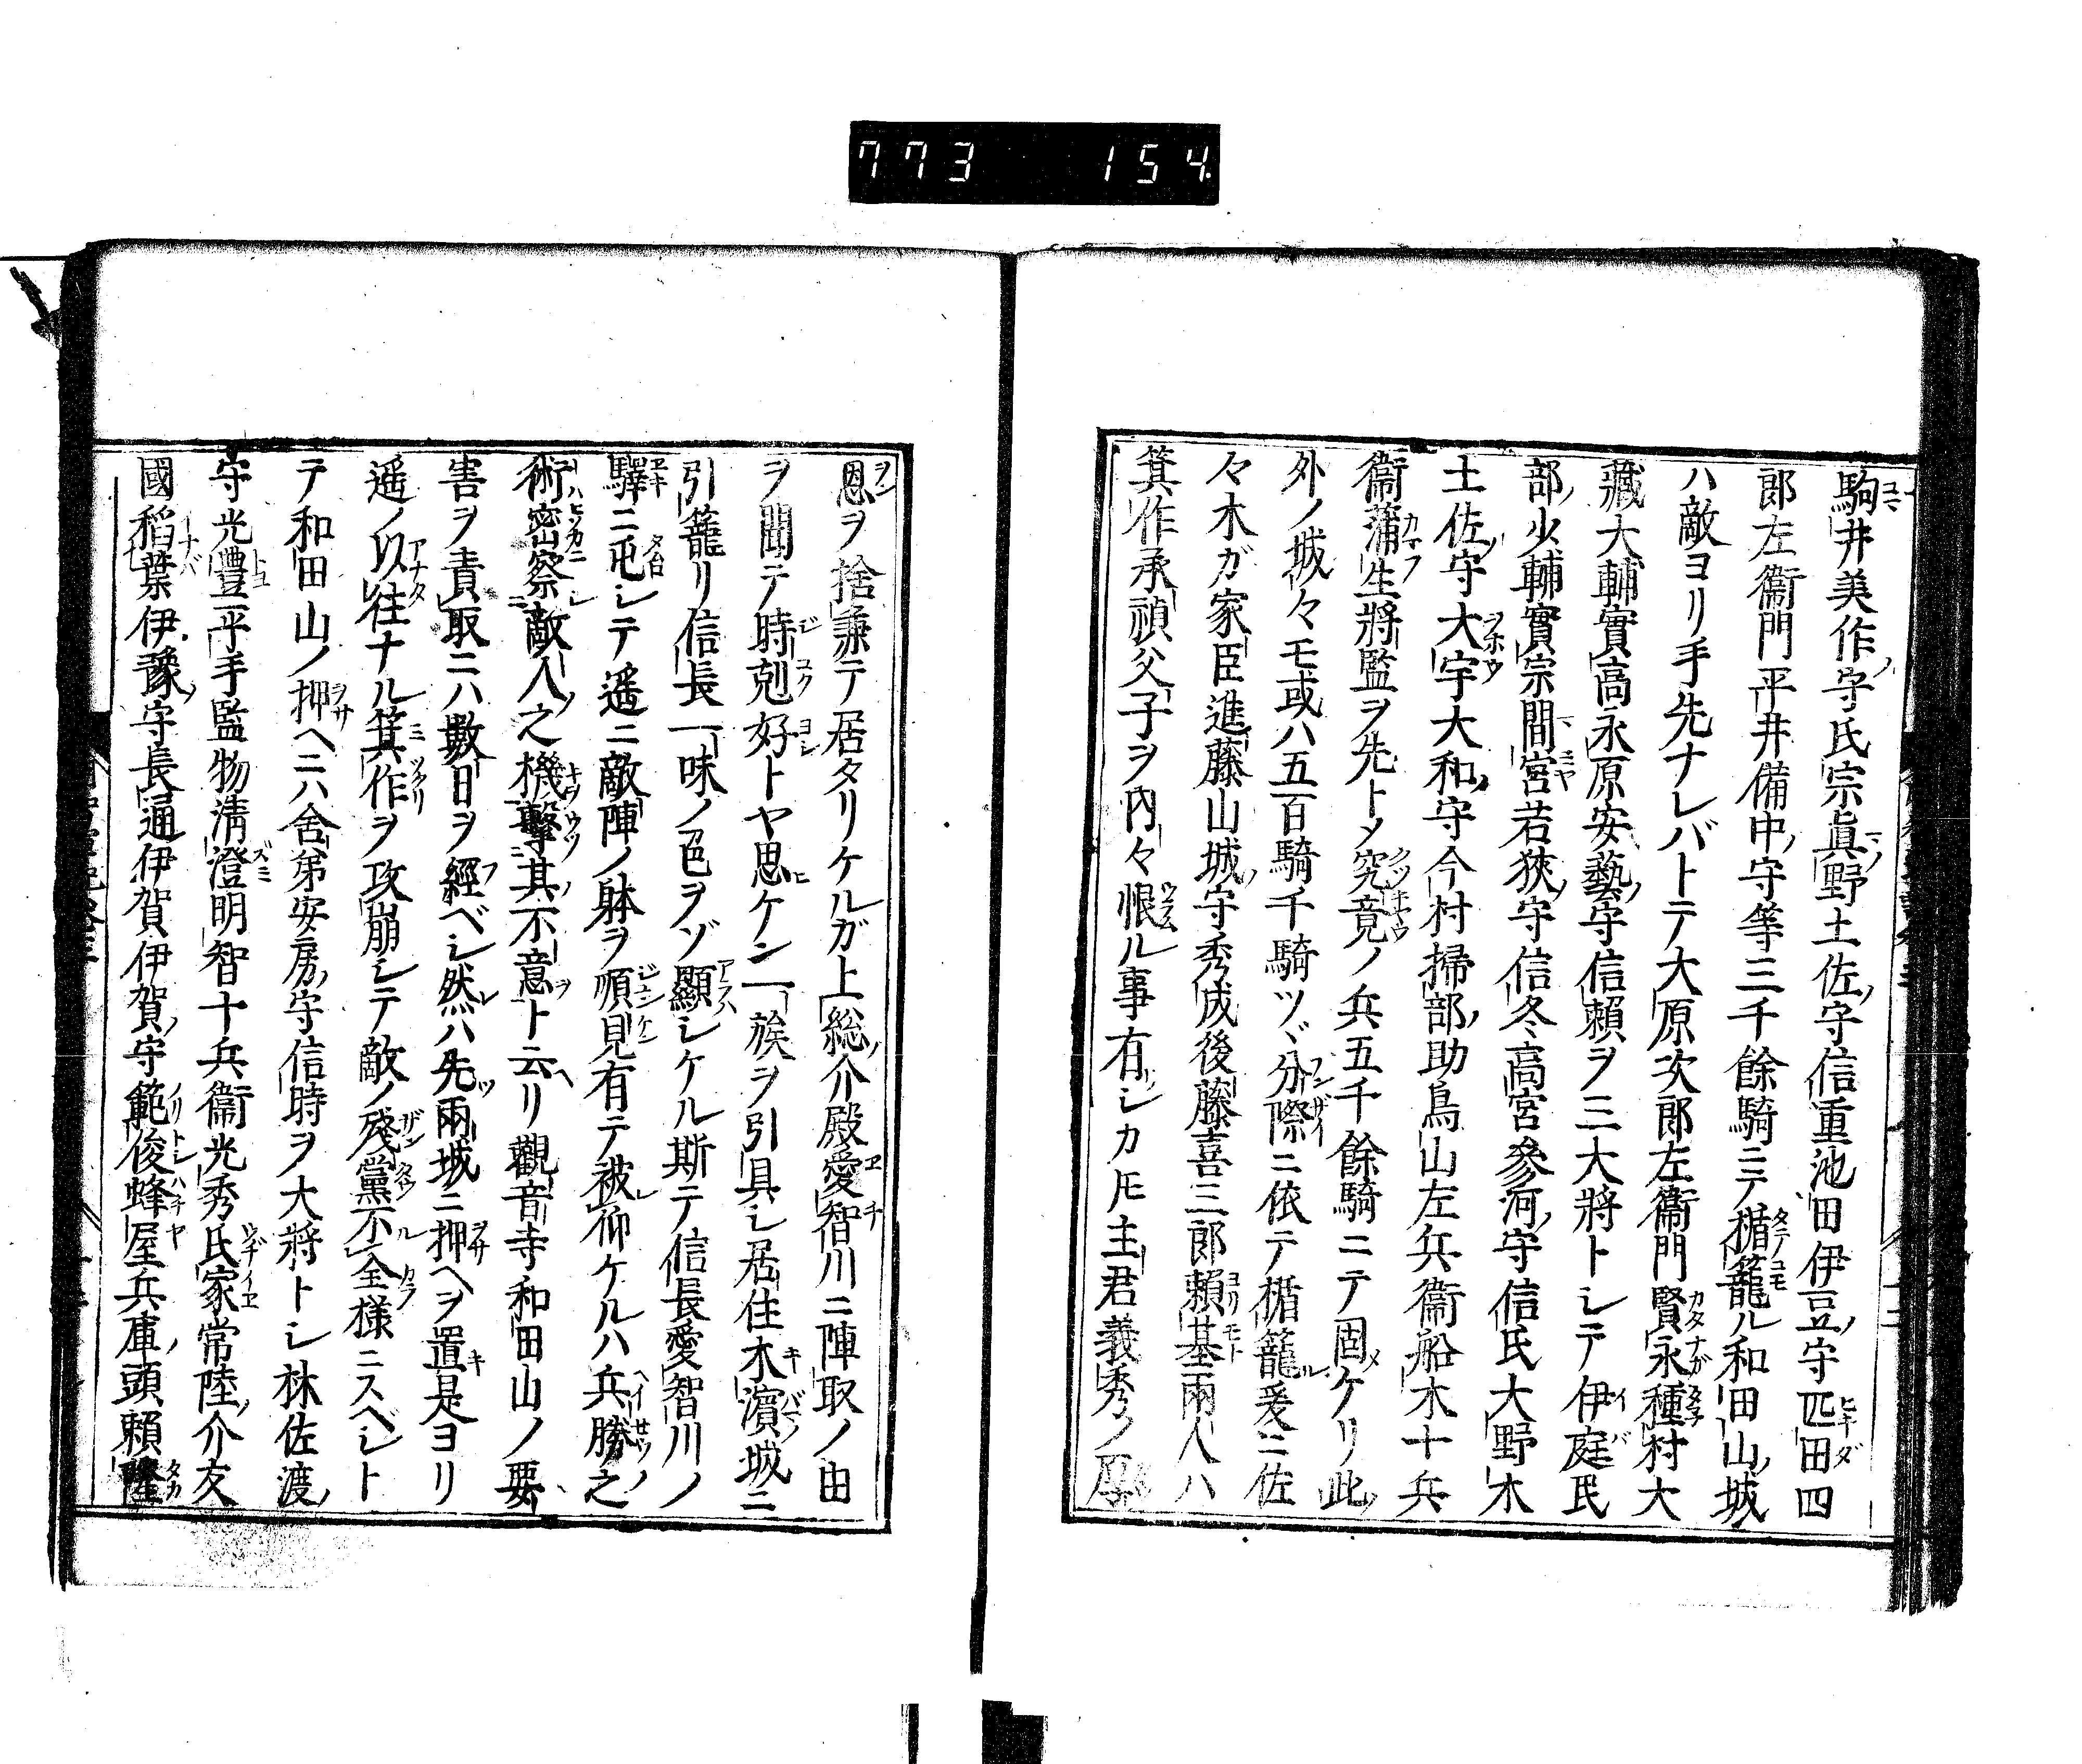 773 154.
駒井美作ノ守氏宗眞野土佐ノ守信重池田伊豆ノ守匹田四
郎左衞門平井備中ノ守等三千餘騎ニテ楯籠ル和田山ノ城
ハ敵ヨリ手先ナレバトテ大原次郎左衞門賢永種村大
藏大輔實高永原安藝ノ守信賴ヲ三大將トシテ伊庭民
部ノ少輔實宗間宮若狹ノ守信冬高宮參河ノ守信氏大野木
土佐ノ守大宇大和ノ守今村掃部ノ助鳥山左兵衞船木十兵
衞蒲生將監ヲ先トメ究竟ノ兵五千餘騎ニテ固メケリ此ノ
外ノ城々モ或ハ五百騎千騎ツヾ分際ニ依テ楯籠ル爰ニ佐
々木ガ家臣進藤山城ノ守秀成後藤喜三郎賴基兩人ハ
箕作承禎父子ヲ内々恨ル事有シカ𪜈主君義秀ノ厚
恩ヲ捨兼テ居タリケルガ上総ノ介殿愛智川ニ陣取ノ由
ヲ聞テ時剋好トヤ思ヒケン一族ヲ引具シ居住木濵ノ城ニ
引籠リ信長一味ノ色ヲゾ顯シケル斯テ信長愛智川ノ
驛ニ屯シテ遥ニ敵陣ノ躰ヲ順見有テ被仰ケルハ兵勝之
術ハ密察敵人之機擊其不意ト云ヘリ觀音寺和田山ノ要
害ヲ責取ニハ數日ヲ經ベシ然レハ先ツ兩城ニ押ヘヲ置キ是ヨリ
遥ノ以往ナル箕作ヲ攻崩シテ敵ノ殘黨不全様ニスベシト
テ和田山ノ押ヘニハ舍弟安房ノ守信時ヲ大將トシ林佐渡ノ
守光豊平手監物淸澄明智十兵衞光秀氏家常陸ノ介友
國稻葉伊豫ノ守長通伊賀伊賀ノ守範俊蜂屋兵庫ノ頭賴隆